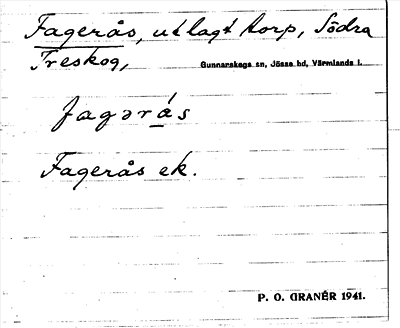 Fagerås, utlagt torp, Södra
Treskog, Gunnarskogs sn, Jösse hd, Värmlands l.
fagərás
Fagerås ek.
P. O. GRANÉR 1941.